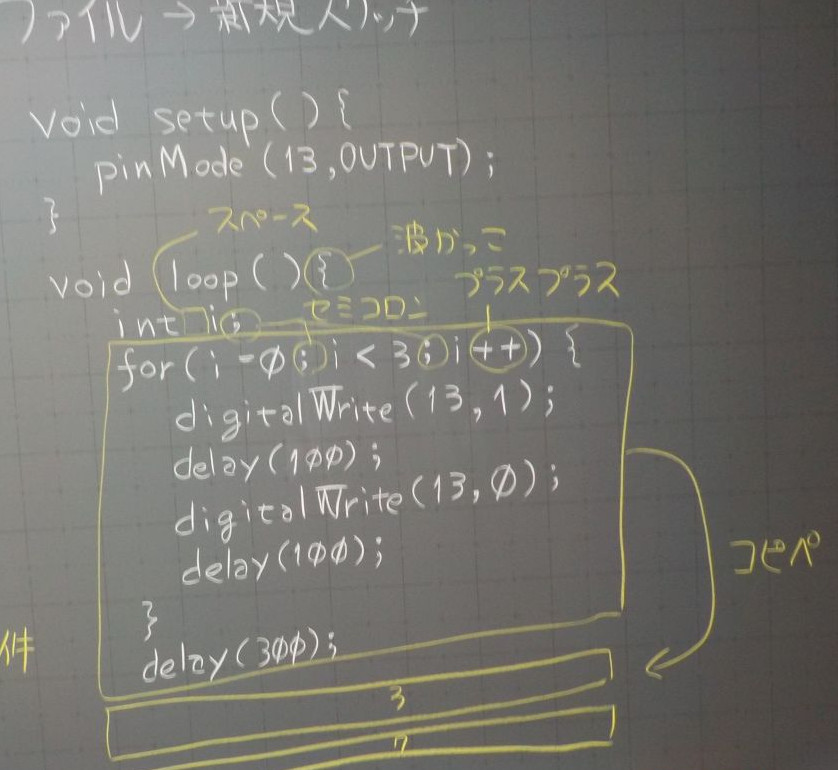 ファイル → 新規スケッチ
void setup(){
pinMode(13,OUTPUT);
}
スペース
波かっこ
void loop(){
プラスプラス
int i;
セミコロン
for(i=0;i<3;i++){
digitalWrite(13,1);
delay(100);
digitalWrite(13,0);
delay(100);
コピペ
}
件
delay(300);
3
7